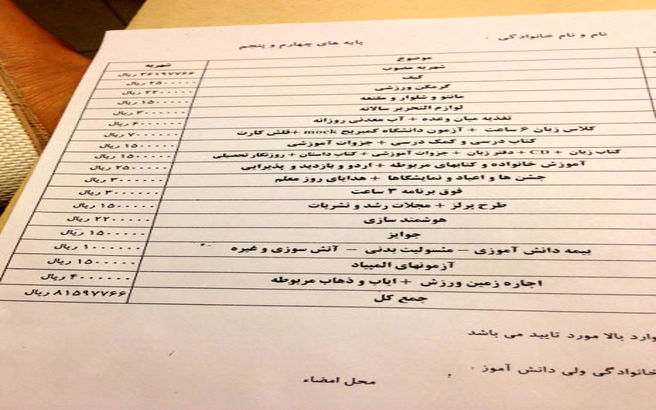 نام و نام خانوادگی
پایه های چهارم و پنجم
موضوع شهریه
شهریه مصوب ۳۶۱۹۷۷۶۶ ریال
کیف ۲۵۰۰۰۰۰ ریال
گرمکن ورزشی ۲۲۰۰۰۰۰ ریال
مانتو و شلوار و مقنعه ۱۵۰۰۰۰۰ ریال
لوازم التحریر سالانه ۳۰۰۰۰۰۰ ریال
تغذیه میان وعده + آب معدنی روزانه ۶۰۰۰۰۰۰ ریال
کلاس زبان ۶ ساعت + آزمون دانشگاه کمبریج mock + فلش کارت ۷۰۰۰۰۰۰ ریال
کتاب درسی و کمک درسی + جزوات آموزشی ۱۵۰۰۰۰۰ ریال
کتاب زبان + CD + دفتر زبان + جزوات آموزشی + کتاب داستان + روزنگار تحصیلی ۱۵۰۰۰۰۰ ریال
آموزش خانواده و کتابهای مربوطه + اردو و بازدید و پذیرایی ۲۵۰۰۰۰۰ ریال
جشن ها و اعیاد و نمایشگاها + هدایای روز معلم ۳۰۰۰۰۰۰ ریال
فوق برنامه ۳ ساعت ۳۰۰۰۰۰۰ ریال
طرح پرلز + مجلات رشد و نشریات ۱۵۰۰۰۰۰ ریال
هوشمند سازی ۲۲۰۰۰۰۰ ریال
جوایز ۱۵۰۰۰۰۰ ریال
بیمه دانش آموزی – مسئولیت بدنی – آتش سوزی و غیره ۱۰۰۰۰۰۰ ریال
آزمونهای المپیاد ۱۵۰۰۰۰۰ ریال
اجاره زمین ورزش + ایاب و ذهاب مربوطه ۴۰۰۰۰۰۰ ریال
جمع کل ۸۱۵۹۷۷۶۶ ریال
وارد بالا مورد تایید می باشد
خانوادگی ولی دانش آموز
محل امضاء